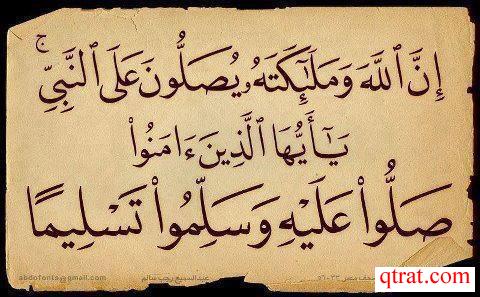 إِنَّ ٱللَّهَ وَمَلَٰٓئِكَتَهُۥ يُصَلُّونَ عَلَى ٱلنَّبِىِّ ۚ
يَٰٓأَيُّهَا ٱلَّذِينَ ءَامَنُوا۟
صَلُّوا۟ عَلَيْهِ وَسَلِّمُوا۟ تَسْلِيمًا
abdofonts@gmail.com عبدالسميع رجب سالم
qtrat.com